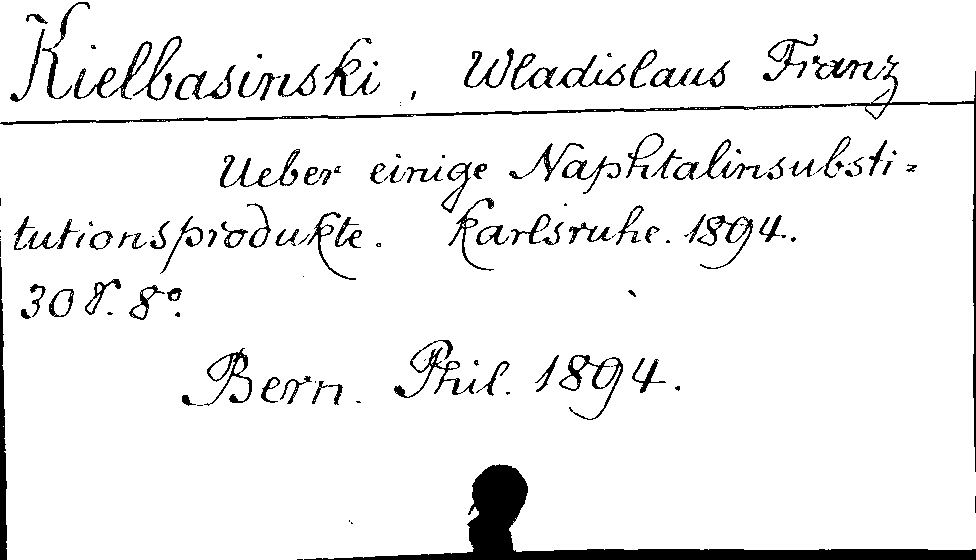 Kielbasinski, Wladislaus Franz
Ueber einige Naphtalinsubsti-
tutionsprodukte. Karlsruhe. 1894.
30 S. 8°.
Bern. Phil. 1894.